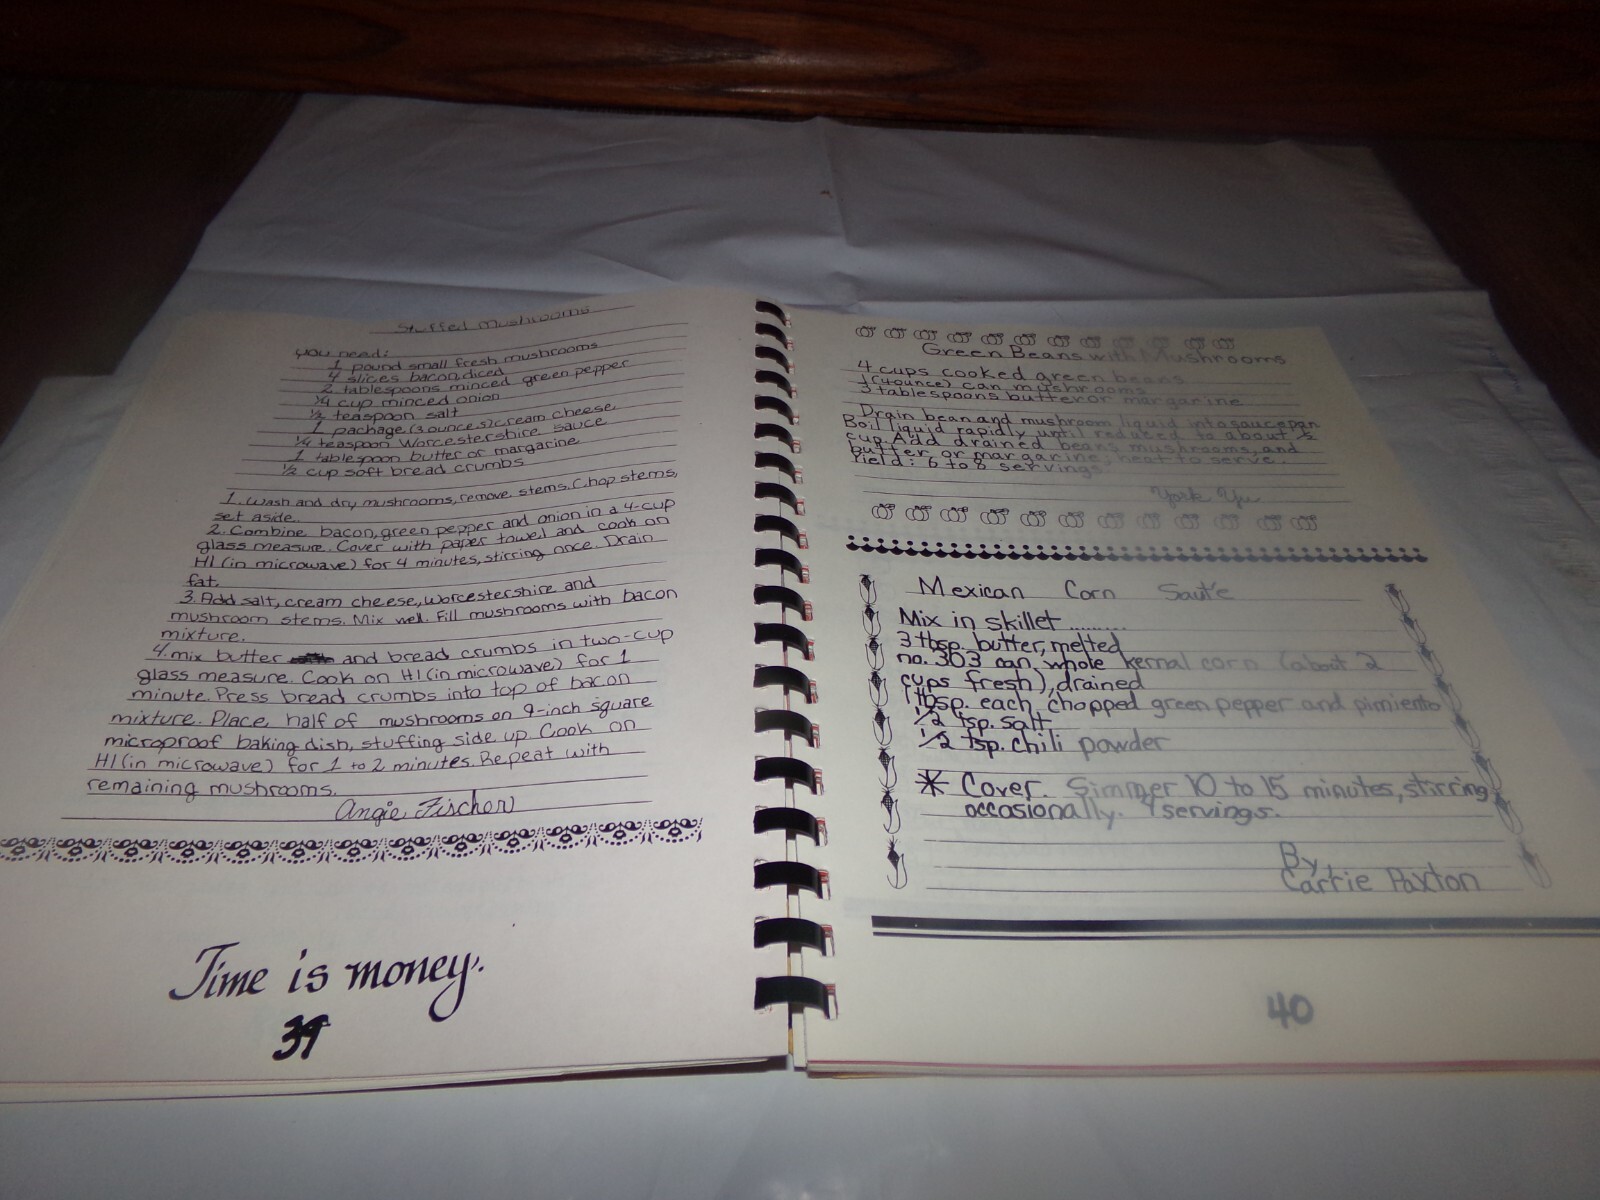 Stuffed Mushrooms
you need:
1 pound small fresh mushrooms
4 slices bacon, diced
2 tablespoons minced green pepper
1/4 cup minced onion
1/2 teaspoon salt
1 package (3 ounces) cream cheese
1/4 teaspoon Worcestershire sauce
1 tablespoon butter or margarine
1/2 cup soft bread crumbs
1. Wash and dry mushrooms, remove stems. Chop stems,
set aside.
2. Combine bacon, green pepper and onion in a 4-cup
glass measure. Cover with paper towel and cook on
HI (in microwave) for 4 minutes, stirring once. Drain
fat.
3. Add salt, cream cheese, Worcestershire and
mushroom stems. Mix well. Fill mushrooms with bacon
mixture.
4. mix butter and bread crumbs in two-cup
glass measure. Cook on HI (in microwave) for 1
minute. Press bread crumbs into top of bacon
mixture. Place half of mushrooms on 9-inch square
microproof baking dish, stuffing side up. Cook on
HI (in microwave) for 1 to 2 minutes. Repeat with
remaining mushrooms.
Angie Fischer
Time is money.
39
Green Beans with Mushrooms
4 cups cooked green beans
1 (4 ounce) can mushrooms
3 tablespoons butter or margarine
Drain bean and mushroom liquid into saucepan.
Boil liquid rapidly until reduced to about 1/2
cup. Add drained beans, mushrooms, and
butter or margarine; heat to serve.
Yield: 6 to 8 servings
York Yu
Mexican Corn Sauté
Mix in skillet .........
3 tbsp. butter, melted
no. 303 can whole kernal corn (about 2
cups fresh), drained
1 tbsp. each, chopped green pepper and pimiento
1/2 tsp. salt
1/2 tsp. chili powder
* Cover. Simmer 10 to 15 minutes, stirring
occasionally. 4 servings.
By,
Carrie Paxton
40